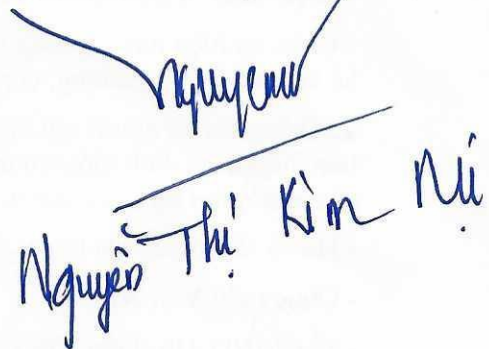 Nguyễn
Nguyễn Thị Kim Nụ